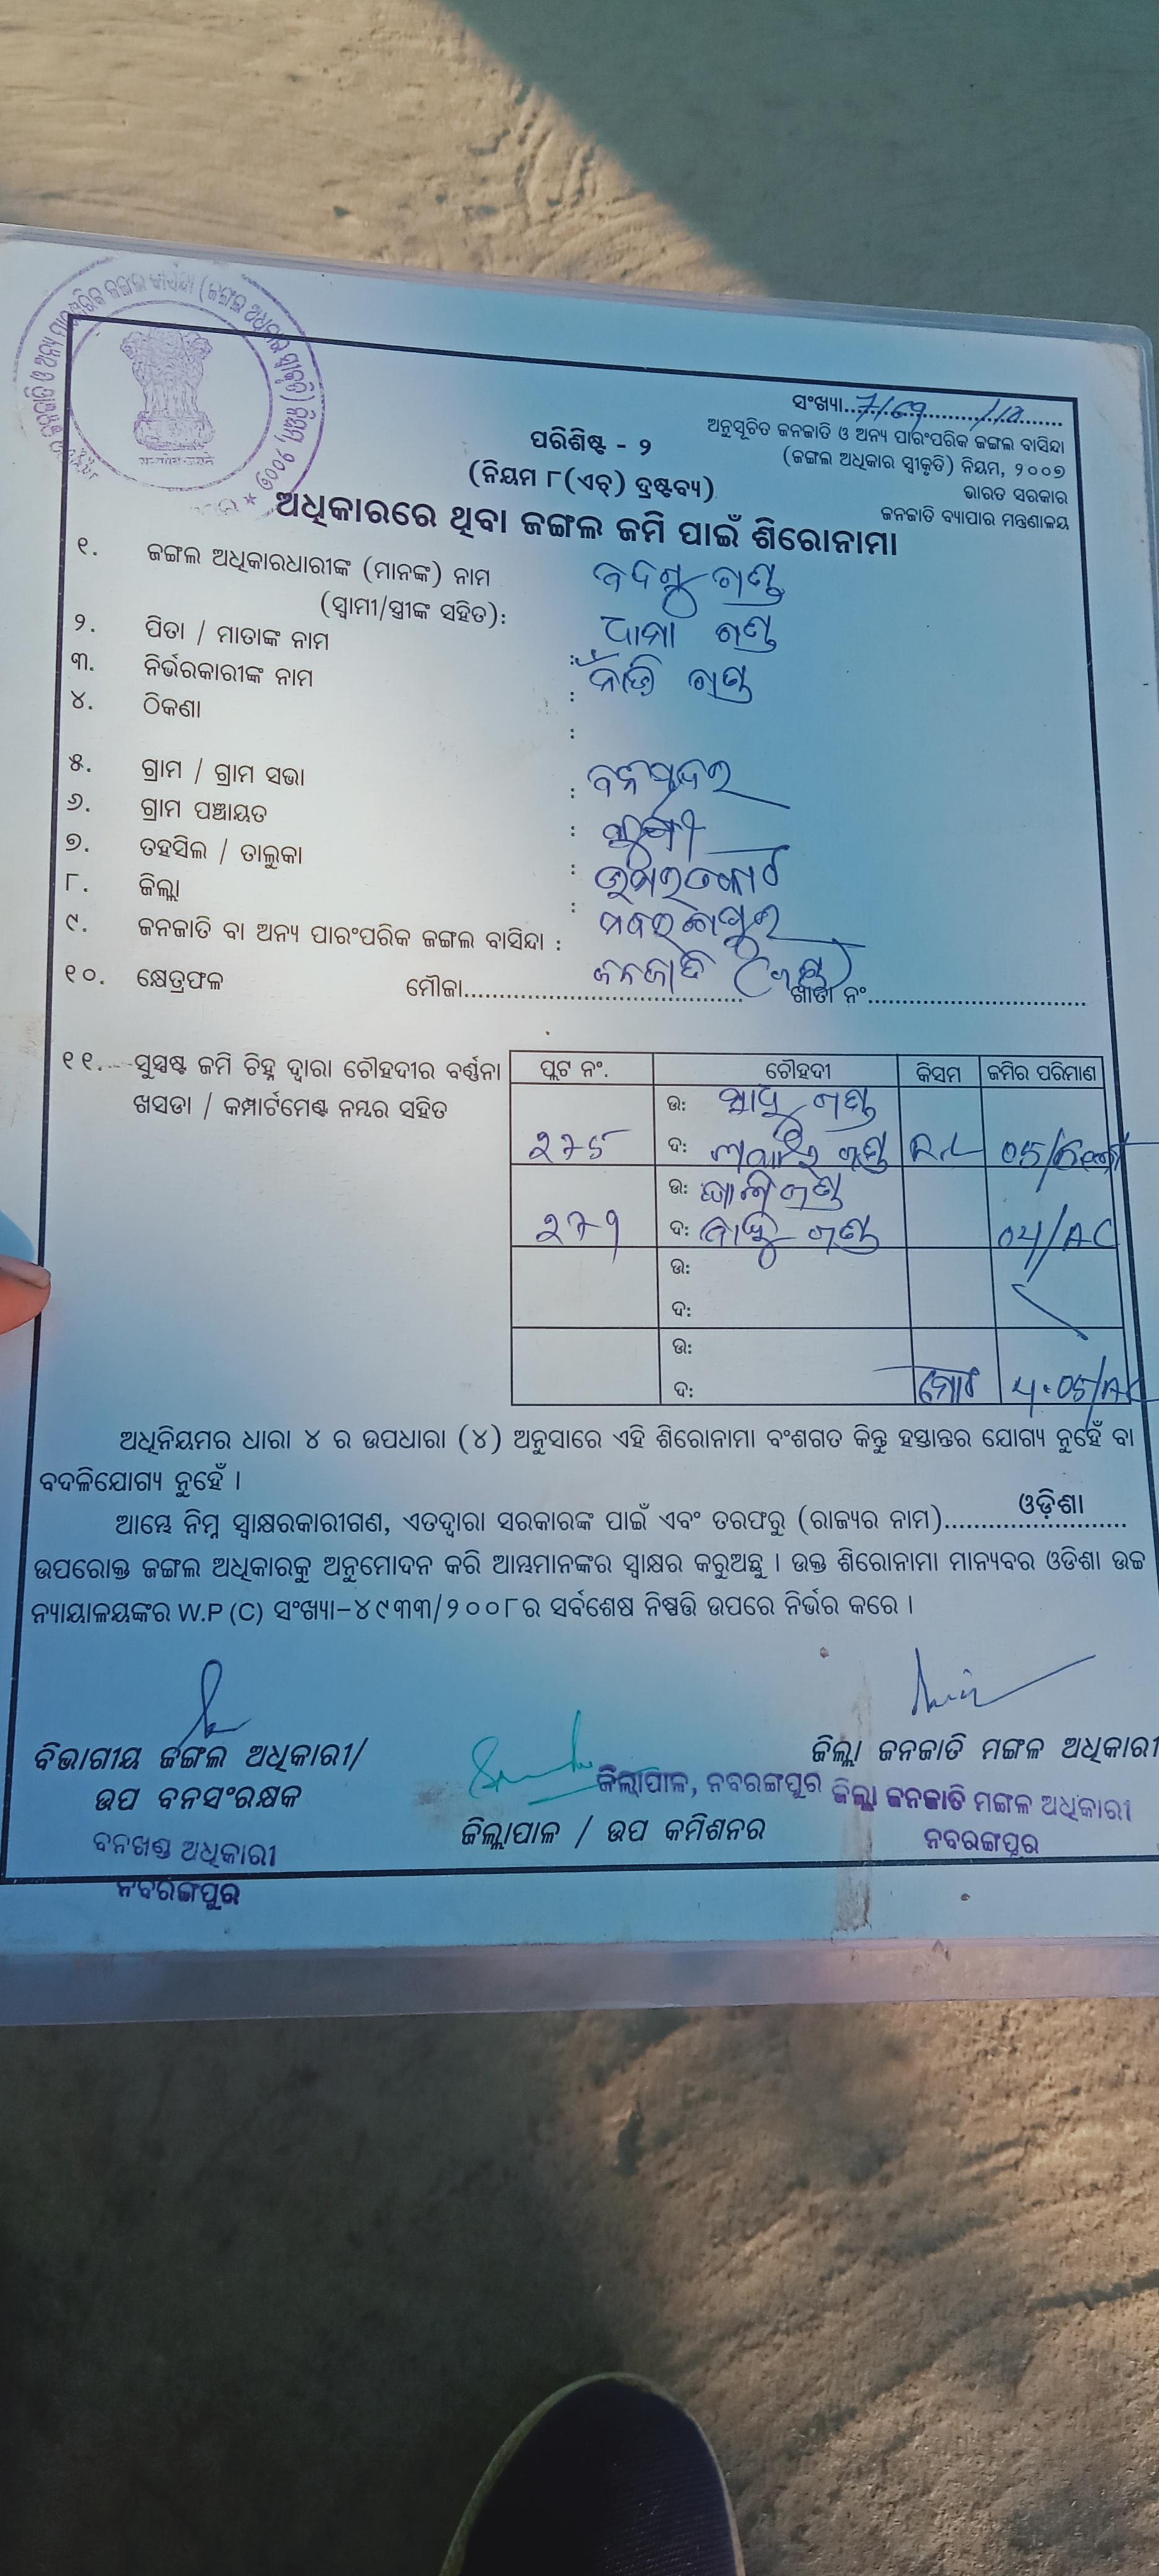 ସଂଖ୍ୟା
ଅନୁସୂଚିତ ଜନଜାତି ଓ ଅନ୍ୟ ପାରଂପରିକ ଜଙ୍ଗଲ ବାସିନ୍ଦା
(ଜଙ୍ଗଲ ଅଧିକାର ସ୍ୱୀକୃତି) ନିୟମ, ୨୦୦୭
ଭାରତ ସରକାର
ଜନଜାତି ବ୍ୟାପାର ମନ୍ତ୍ରଣାଳୟ
ପରିଶିଷ୍ଟ - ୨
(ନିୟମ ୮(ଏଚ୍) ଦ୍ରଷ୍ଟବ୍ୟ)
ଅଧିକାରରେ ଥିବା ଜଙ୍ଗଲ ଜମି ପାଇଁ ଶିରୋନାମା
୧. ଜଙ୍ଗଲ ଅଧିକାରଧାରୀଙ୍କ (ମାନଙ୍କ) ନାମ
(ସ୍ୱାମୀ/ସ୍ତ୍ରୀଙ୍କ ସହିତ):
୨. ପିତା / ମାତାଙ୍କ ନାମ :
୩. ନିର୍ଭରକାରୀଙ୍କ ନାମ :
୪. ଠିକଣା :
୫. ଗ୍ରାମ / ଗ୍ରାମ ସଭା :
୬. ଗ୍ରାମ ପଞ୍ଚାୟତ :
୭. ତହସିଲ / ତାଲୁକା : ଉମରକୋଟ
୮. ଜିଲ୍ଲା : ନବରଙ୍ଗପୁର
୯. ଜନଜାତି ବା ଅନ୍ୟ ପାରଂପରିକ ଜଙ୍ଗଲ ବାସିନ୍ଦା : ଜନଜାତି
୧୦. କ୍ଷେତ୍ରଫଳ ମୌଜା............ ଖାତା ନଂ............
୧୧. ସୁସ୍ପଷ୍ଟ ଜମି ଚିହ୍ନ ଦ୍ୱାରା ଚୌହଦୀର ବର୍ଣ୍ଣନା
ଖସଡା / କମ୍ପାର୍ଟମେଣ୍ଟ ନମ୍ବର ସହିତ
ପ୍ଲଟ ନଂ. ଚୌହଦୀ କିସମ ଜମିର ପରିମାଣ
ଉ:
ଦ:
ଉ:
ଦ: 04/AC
ଉ:
ଦ:
ଉ:
ଦ: ମୋଟ 4.05/AC
ଅଧିନିୟମର ଧାରା ୪ ର ଉପଧାରା (୪) ଅନୁସାରେ ଏହି ଶିରୋନାମା ବଂଶଗତ କିନ୍ତୁ ହସ୍ତାନ୍ତର ଯୋଗ୍ୟ ନୁହେଁ ବା
ବଦଳିଯୋଗ୍ୟ ନୁହେଁ ।
ଆମ୍ଭେ ନିମ୍ନ ସ୍ୱାକ୍ଷରକାରୀଗଣ, ଏତଦ୍ୱାରା ସରକାରଙ୍କ ପାଇଁ ଏବଂ ତରଫରୁ (ରାଜ୍ୟର ନାମ)............ଓଡ଼ିଶା............
ଉପରୋକ୍ତ ଜଙ୍ଗଲ ଅଧିକାରକୁ ଅନୁମୋଦନ କରି ଆମ୍ଭମାନଙ୍କର ସ୍ୱାକ୍ଷର କରୁଅଛୁ । ଉକ୍ତ ଶିରୋନାମା ମାନ୍ୟବର ଓଡିଶା ଉଚ୍ଚ
ନ୍ୟାୟାଳୟଙ୍କର W.P (C) ସଂଖ୍ୟା-୪୯୩୩/୨୦୦୮ର ସର୍ବଶେଷ ନିଷ୍ପତ୍ତି ଉପରେ ନିର୍ଭର କରେ ।
ବିଭାଗୀୟ ଜଙ୍ଗଲ ଅଧିକାରୀ/
ଉପ ବନସଂରକ୍ଷକ
ବନଖଣ୍ଡ ଅଧିକାରୀ
ନବରଙ୍ଗପୁର
ଜିଲ୍ଲାପାଳ, ନବରଙ୍ଗପୁର
ଜିଲ୍ଲାପାଳ / ଉପ କମିଶନର
ଜିଲ୍ଲା ଜନଜାତି ମଙ୍ଗଳ ଅଧିକାରୀ
ଜିଲ୍ଲା ଜନଜାତି ମଙ୍ଗଳ ଅଧିକାରୀ
ନବରଙ୍ଗପୁର